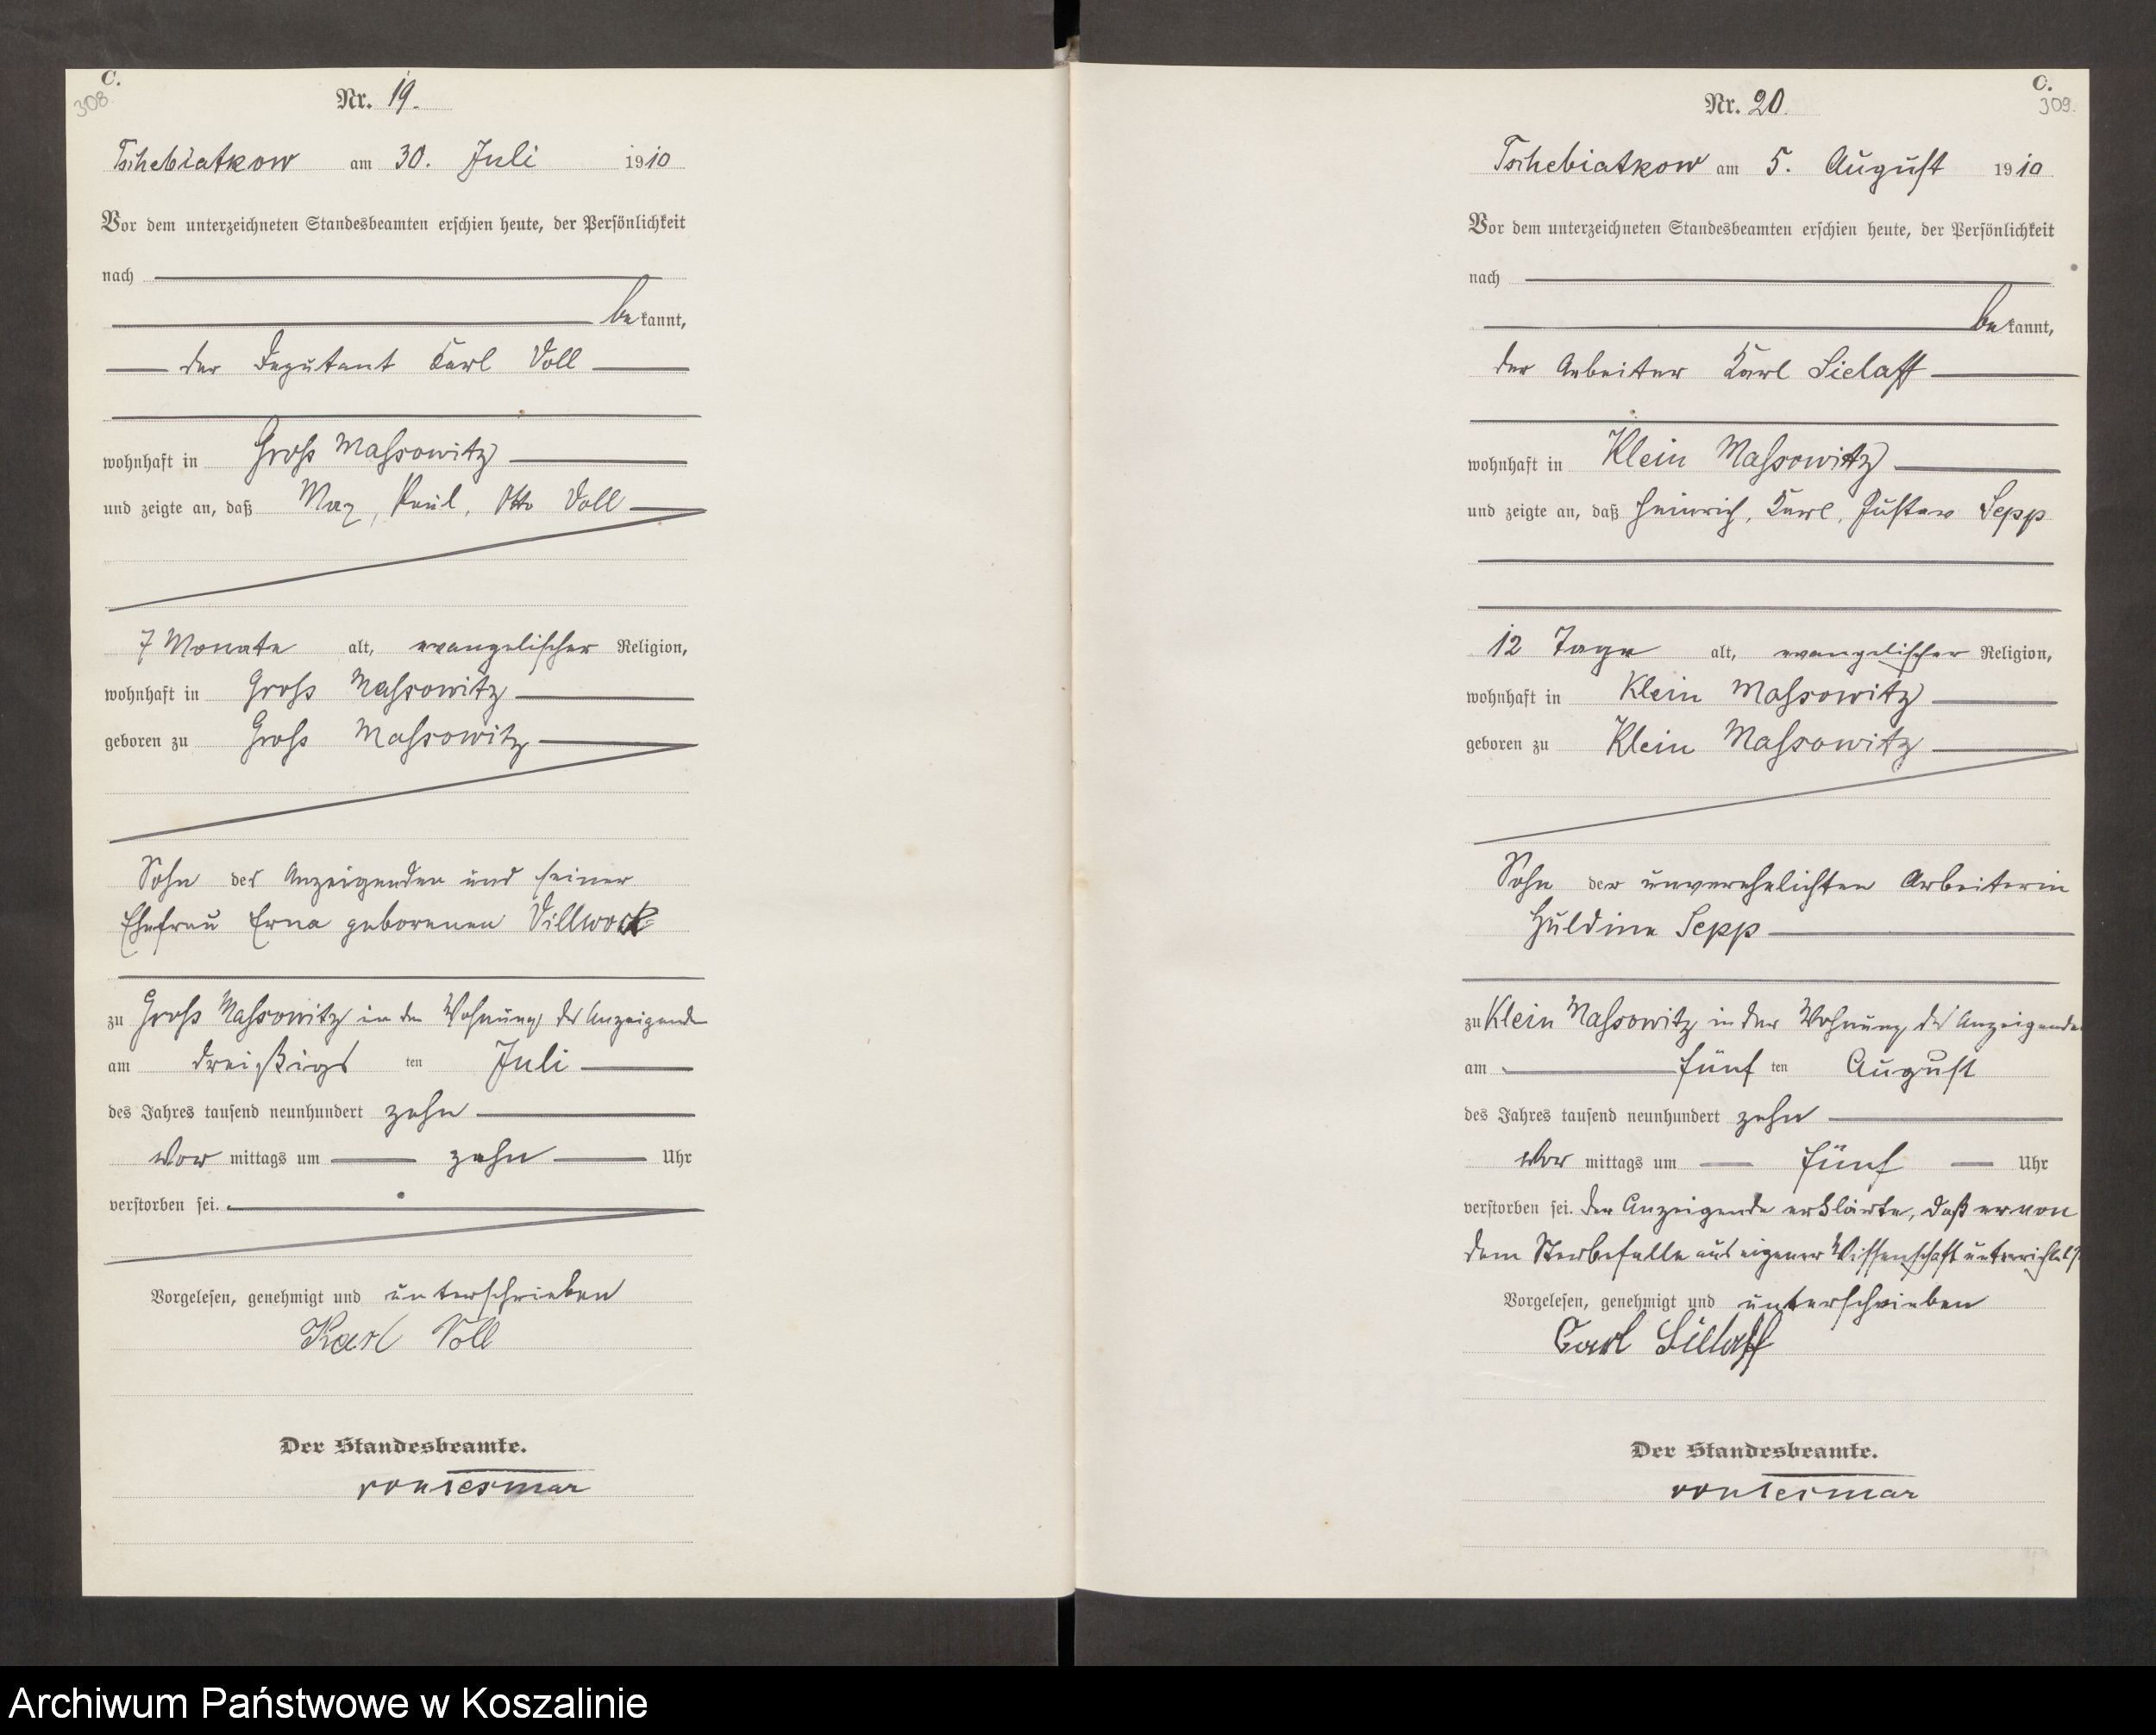 C.
308.
Nr. 19.
Tschebiatkow am 30. Juli 1910
Vor dem unterzeichneten Standesbeamten erschien heute, der Persönlichkeit
nach
bekannt,
der Deputant Karl Voll
wohnhaft in Groß Massowitz
und zeigte an, daß Max, Paul, Otto Voll
7 Monate alt, evangelischer Religion,
wohnhaft in Groß Massowitz
geboren zu Groß Massowitz
Sohn des Anzeigenden und seiner
Ehefrau Erna geborenen Villwock
zu Groß Massowitz in der Wohnung des Anzeigenden
am dreißigsten Juli
des Jahres tausend neunhundert zehn
Vormittags um zehn Uhr
verstorben sei.
Vorgelesen, genehmigt und unterschrieben
Karl Voll
Der Standesbeamte.
von Tesmar
C.
309.
Nr. 20.
Tschebiatkow am 5. August 1910
Vor dem unterzeichneten Standesbeamten erschien heute, der Persönlichkeit
nach
bekannt,
der Arbeiter Karl Sielaff
wohnhaft in Klein Massowitz
und zeigte an, daß Heinrich, Karl, Gustav Sepp
12 Tage alt, evangelischer Religion,
wohnhaft in Klein Massowitz
geboren zu Klein Massowitz
Sohn der unverehelichten Arbeiterin
Huldine Sepp
zu Klein Massowitz in der Wohnung des Anzeigenden
am fünften August
des Jahres tausend neunhundert zehn
Vormittags um fünf Uhr
verstorben sei. Der Anzeigende erklärte, daß er von
dem Sterbefalle aus eigener Wissenschaft unterrichtet
Vorgelesen, genehmigt und unterschrieben
Carl Sielaff
Der Standesbeamte.
von Tesmar
Archiwum Państwowe w Koszalinie